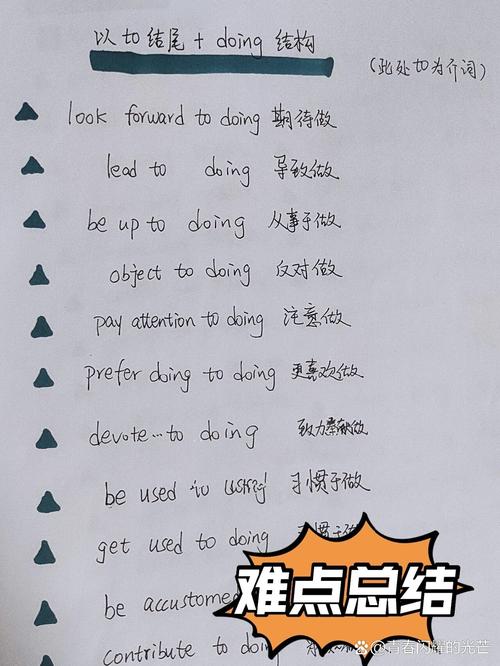 以to结尾 + doing 结构
(此处to为介词)
look forward to doing 期待做
lead to doing 导致做
be up to doing 从事于做
object to doing 反对做
pay attention to doing 注意做
prefer doing to doing 更喜欢做
devote...to doing 致力奉献做
be used to 习惯于做
get used to doing 习惯于做
be accustomed
contribute to doing
难点总结
青春闪耀的光芒